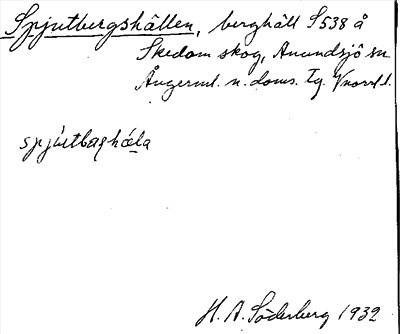 Spjutbergshällen, berghäll S538 å
Skedom skog, Anundsjö sn
Ångerml. n. doms. Tg. Vnorrl. l.
spjùtbaghǽla
H. A. Söderberg 1932